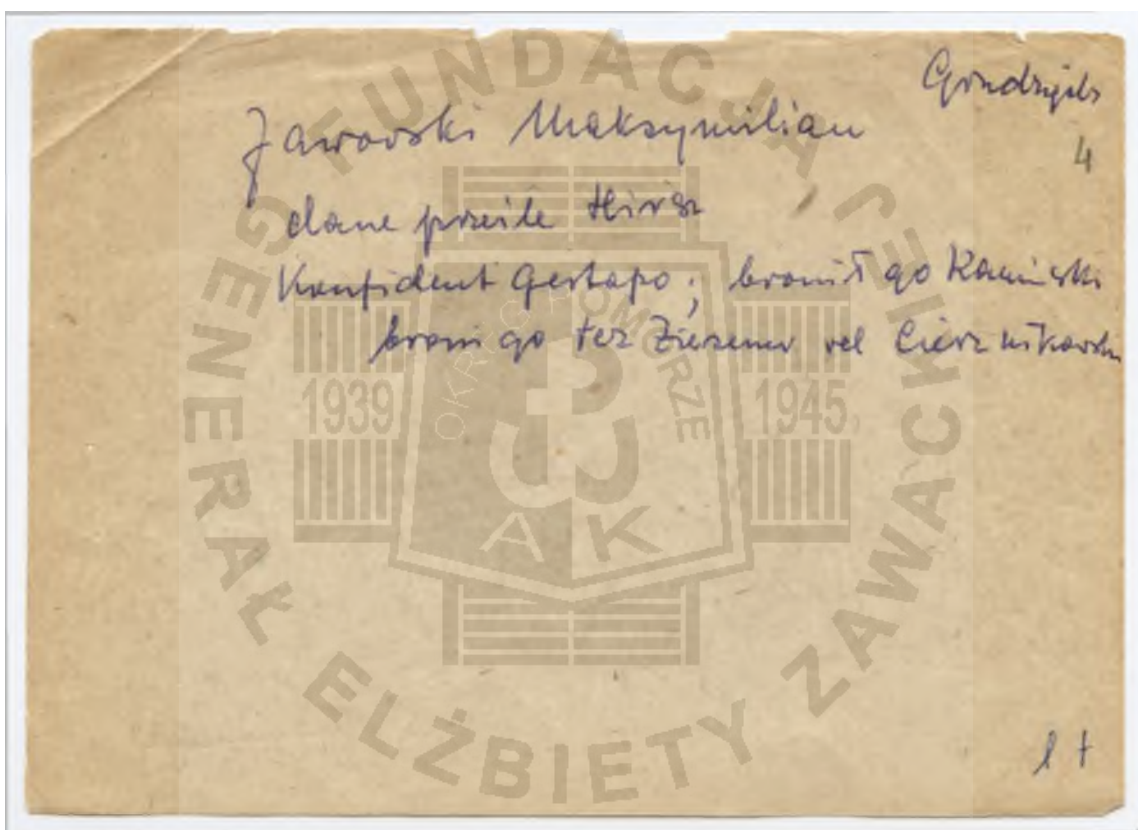 Grudziądz
4
Jaworski Maksymilian
dane prześle Hirsz
Konfident Gestapo; bronił go Kamiński
broni go też vel
l t
FUNDACJA GENERAŁ ELŻBIETY ZAWACKIEJ
OKRĘG POMORZE
1939
1945
AK